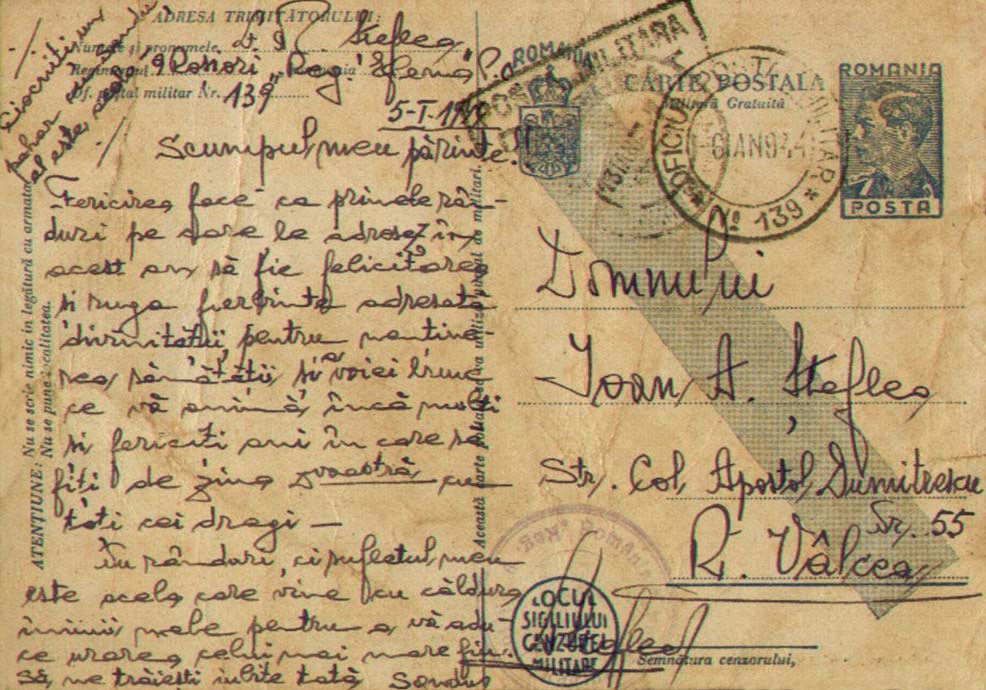 ADRESA TRIMIȚĂTORULUI:
Numele și pronumele Șteflea
Regimentul 9 Roșiori Reg. "
Of. poștal militar Nr. 139
5-I-
Ciocniti un
pahar cu Sandu
al este acolo
Scumpul meu părinte.
Fericirea face ca primele rân-
duri pe care le adresez în
acest an să fie felicitarea
și ruga fierbinte adresată
divinității pentru menține-
rea sănătății și a voiei bune
ce vă animă, încă mulți
și fericiți ani în care să
fiți de ziua voastră cu
toți cei dragi —
Nu rânduri, ci sufletul meu
este acela care vine cu căldura
inimii mele pentru a vă adu-
ce urarea celui mai mare fiu.
Să ne trăiești iubite tată Sandu
ATENȚIUNE: Nu se scrie nimic în legătură cu armata
Nu se pune localitatea.
Această carte poștală se va utiliza numai de militari.
ROMANIA
CARTE POSTALA
Militară Gratuită
POSTA MILITARA
OFICIUL POSTAL MILITAR
-6 IAN 944
№ 139
ROMANIA
7
POSTA
Domnului
Ioan A. Șteflea
Str. Col. Apostol Dumitrescu
Nr. 55
R. Vâlcea
LOCUL
SIGILIULUI
CENZUREI
MILITARE
Semnătura cenzorului,